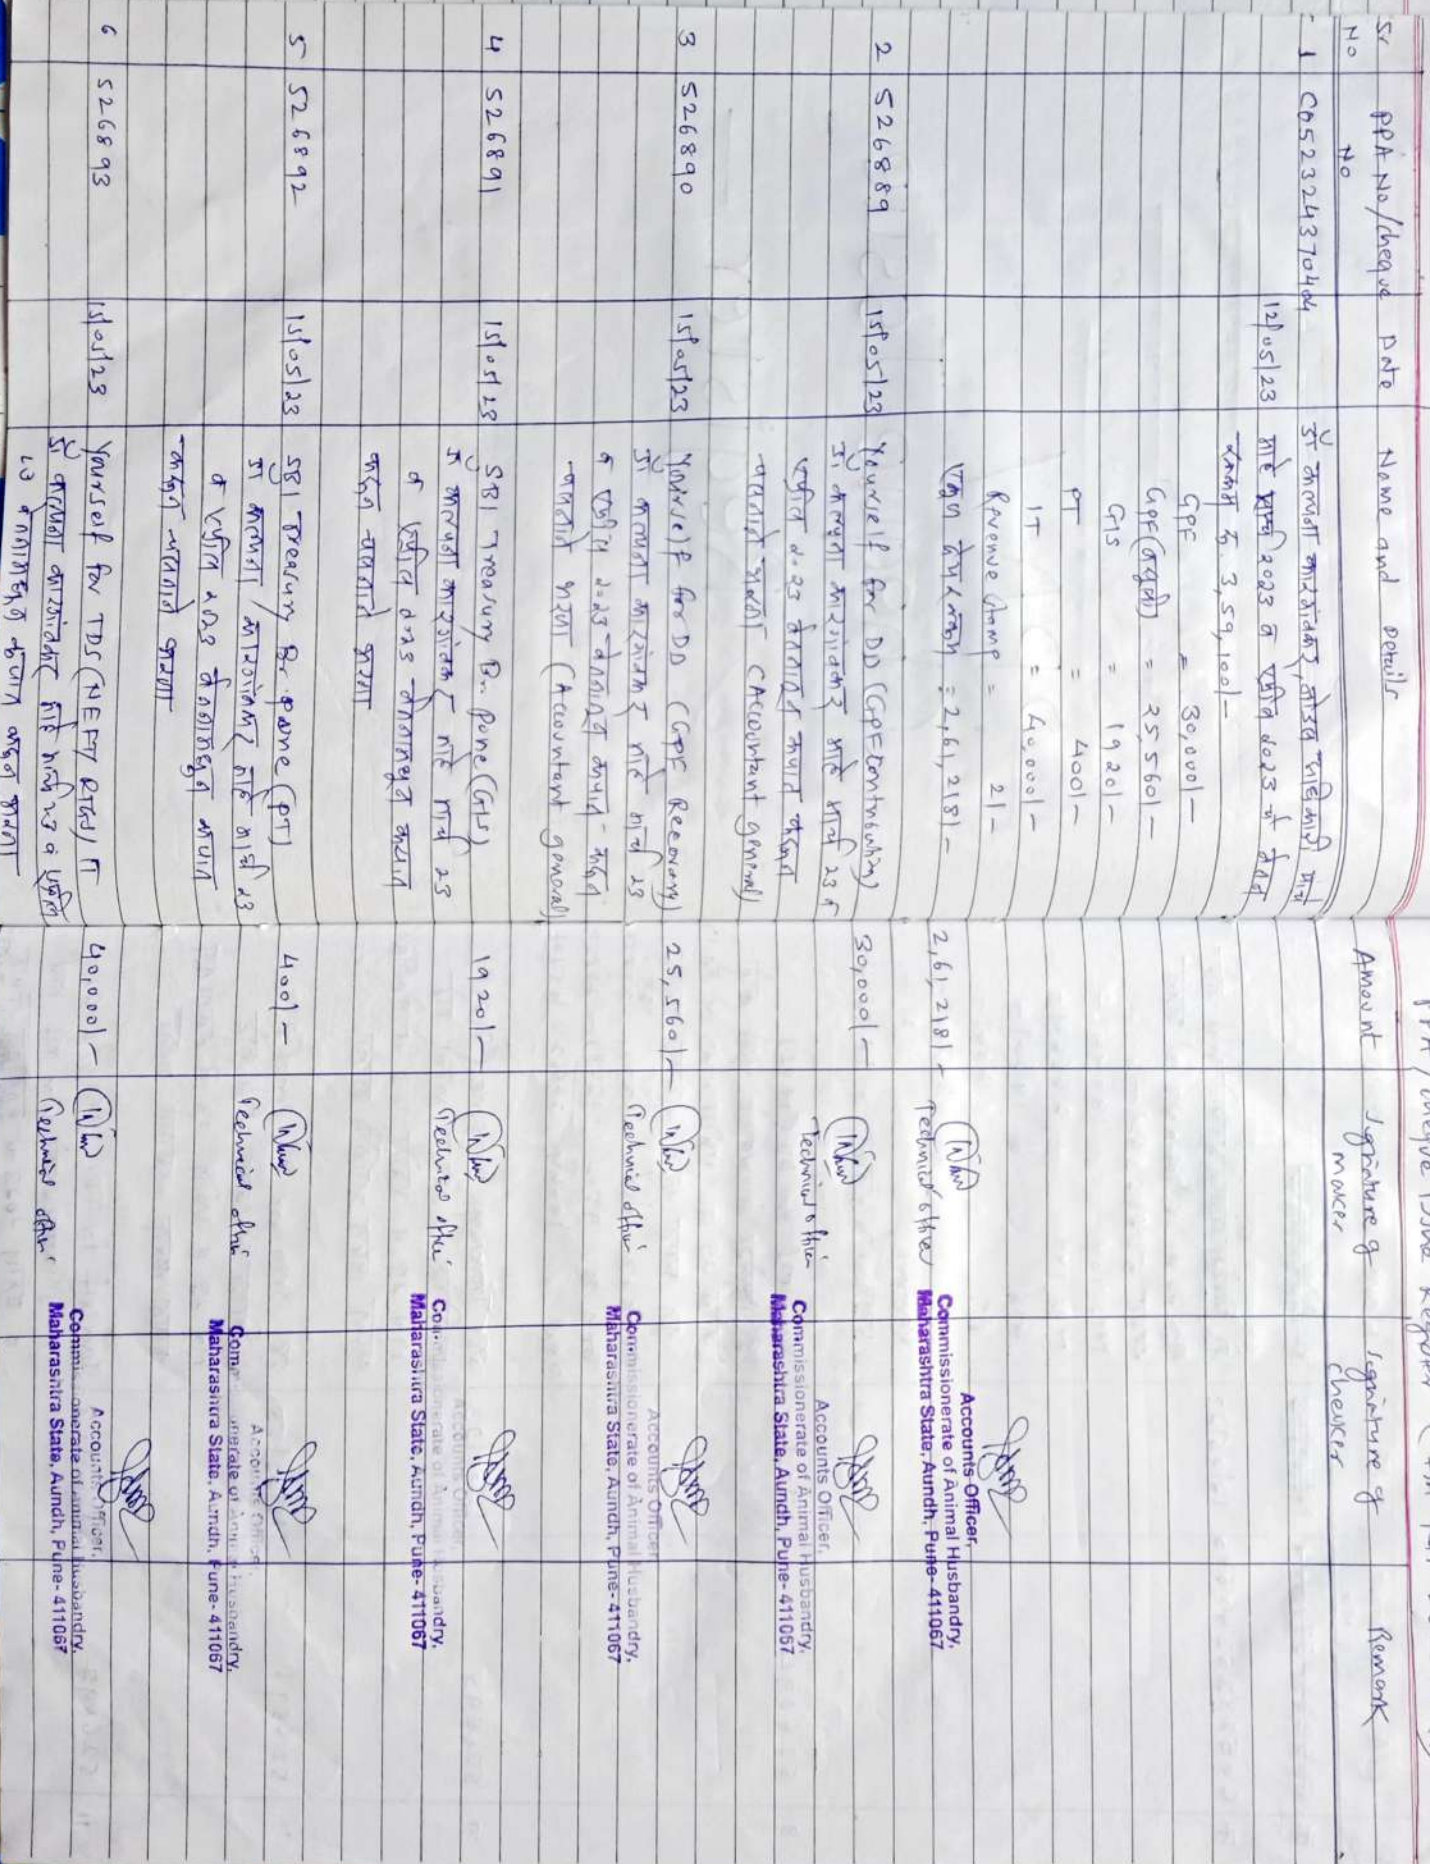 PPA / cheque Issue Register
Sr No
PPA No/cheque No
Date
Name and Details
Amount
Signature of maker
Signature of checker
Remark
1 C052324370404 12/05/23
माहे मार्च 2023 व एप्रील 2023 चे वेतन
रक्कम रु. 3,59,100/-
GPF = 30,000/-
GPF = 25,560/-
GIS = 1920/-
PT = 400/-
IT = 40,000/-
Revenue Stamp = 2/-
एकूण देय रक्कम = 2,61,218/- 2,61,218/-
Technical officer
Accounts Officer,
Commissionerate of Animal Husbandry,
Maharashtra State, Aundh, Pune-411067
2 526889 15/05/23 Yourself for DD (GPF Contribution) 30,000/-
डॉ कल्पना माहे मार्च 23 व
एप्रील 2023 वेतनातून कपात करून
(Accountant general)
Technical officer
Accounts Officer,
Commissionerate of Animal Husbandry,
Maharashtra State, Aundh, Pune-411067
3 526890 15/05/23 Yourself for DD (GPF Recovery) 25,560/-
डॉ कल्पना माहे मार्च 23
व एप्रील 2023 वेतनातून कपात करून
(Accountant general)
Technical officer
Accounts Officer
Commissionerate of Animal Husbandry,
Maharashtra State, Aundh, Pune-411067
4 526891 15/05/23 SBI Treasury Br. Pune (GIS) 1920/-
डॉ कल्पना माहे मार्च 23
व एप्रील 2023 वेतनातून कपात
करून
Technical officer
Accounts Officer,
Commissionerate of Animal Husbandry,
Maharashtra State, Aundh, Pune-411067
5 526892 15/05/23 SBI Treasury Br. pune (PT) 400/-
डॉ कल्पना माहे मार्च 23
व एप्रील 2023 वेतनातून कपात
करून
Technical officer
Accounts Officer,
Commissionerate of Animal Husbandry,
Maharashtra State, Aundh, Pune-411067
6 526893 15/05/23 Yourself for TDS (NEFT/RTGS) IT 40,000/-
डॉ कल्पना माहे मार्च 23 व एप्रील
23 वेतनातून कपात करून
Technical officer
Accounts Officer,
Commissionerate of Animal Husbandry,
Maharashtra State, Aundh, Pune-411067